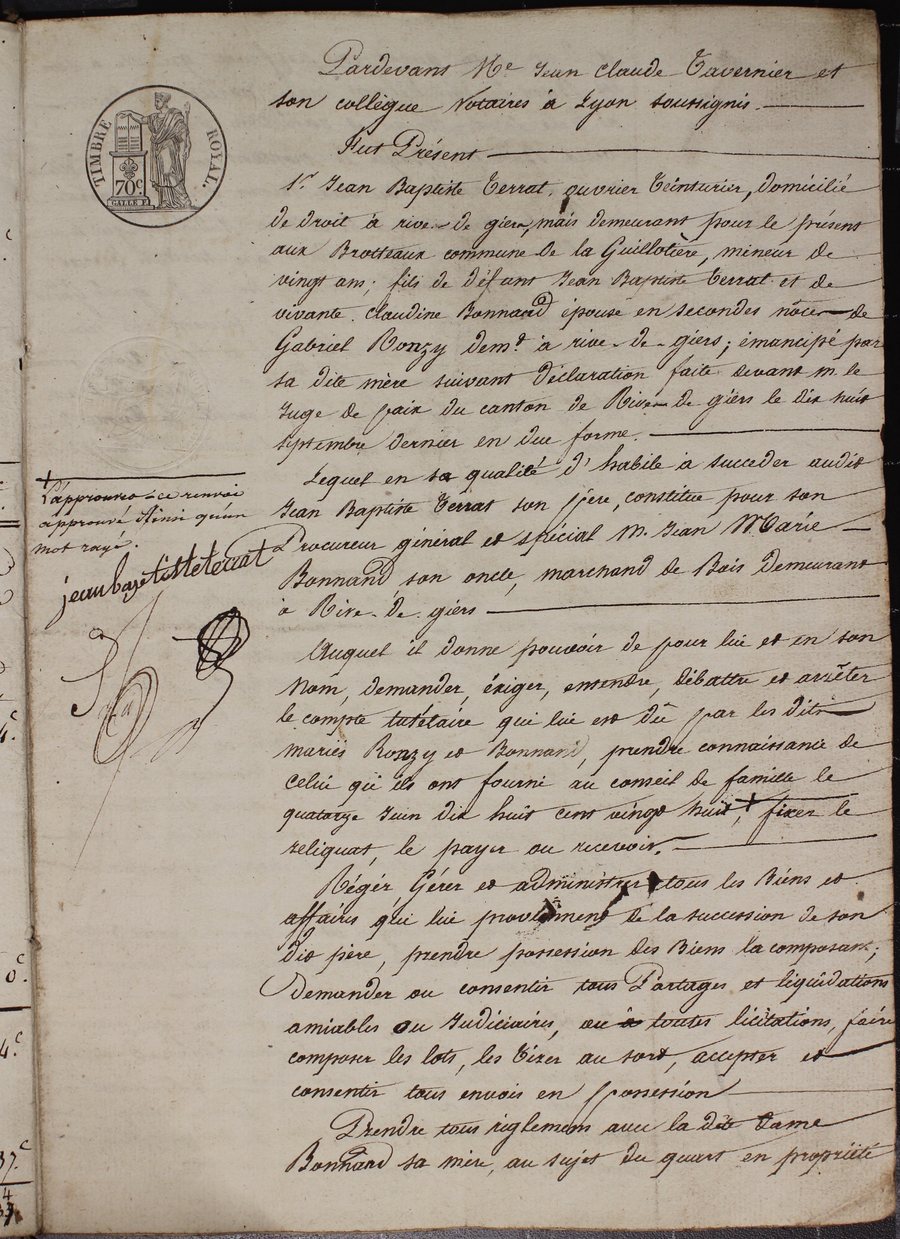 TIMBRE ROYAL.
70c.
Pardevant Me Jean Claude Tavernier et
son collègue Notaires à Lyon soussignés.
Fut Présent
Sr. Jean Baptiste Terrat, ouvrier Teinturier, domicilié
de droit à rive-de gier, mais demeurant pour le présent
aux Brotteaux commune de la Guillotière, mineur de
vingt ans; fils de défunt Jean Baptiste Terrat et de
vivante Claudine Bonnand épouse en secondes nôces de
Gabriel Ronzy demt à rive-de-giers; émancipé par
sa dite mère suivant déclaration faite devant m. le
Juge de paix du canton de Rive-de giers le dix huit
septembre dernier en due forme.
Lequel en sa qualité d'habile à succéder audit
Jean Baptiste Terrat son père, constitue pour son
Procureur général et spécial M. Jean Marie
Bonnand, son oncle, marchand de Bois demeurant
à Rive-de-giers
Auquel il donne pouvoir de pour lui et en son
Nom, demander, éxiger, entendre, débattre et arrêter
le compte tutélaire qui lui est dû par les dits
mariés Ronzy et Bonnand, prendre connaissance de
celui qu'ils ont fourni au conseil de famille le
quatorze Juin dix huit cent vingt huit, + fixer le
reliquat, le payer ou recevoir.
Régér Gérer et administrer tous les Biens et
affaires qui lui proviennent de la succession de son
dit père, prendre possession des Biens la composant;
Demander ou consentir tous Partages et liquidations
amiables ou Judiciaires, ou à toutes licitations, faire
composer les lots, les tirer au sort, accepter et
consentir tous envois en possession
Prendre tous réglemens avec la dite Dame
Bonnand sa mère, au sujet du quart en propriété
+
L'approuver = ce renvoi
approuvé Ainsi qu'un
mot rayé.
jean baptiste terrat